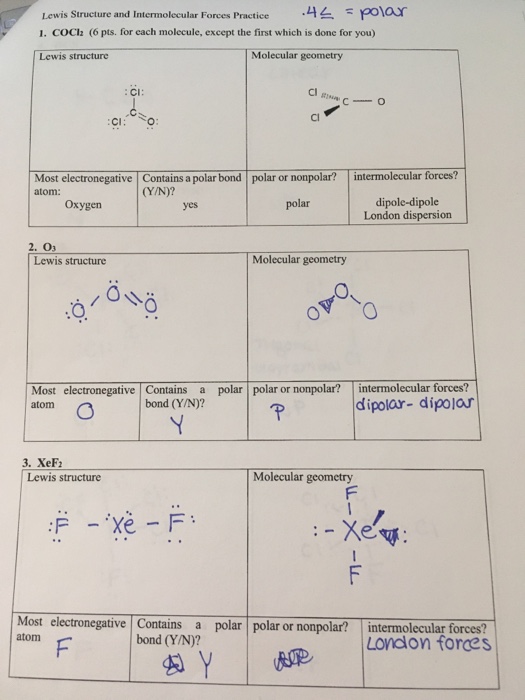 Lewis Structure and Intermolecular Forces Practice .4≤ = polar
1. COCl₂ (6 pts. for each molecule, except the first which is done for you)
Lewis structure Molecular geometry
:Cl: Cl C O
C Cl
:Cl: O:
Most electronegative atom: Contains a polar bond (Y/N)? polar or nonpolar? intermolecular forces?
Oxygen yes polar dipole-dipole
London dispersion
2. O₃
Lewis structure Molecular geometry
:O - O = O O O O
Most electronegative atom Contains a polar bond (Y/N)? polar or nonpolar? intermolecular forces?
O Y P dipolar-dipolar
3. XeF₂
Lewis structure Molecular geometry
F
:F - Xe - F: :-Xe:
F
Most electronegative atom Contains a polar bond (Y/N)? polar or nonpolar? intermolecular forces?
F Y London forces